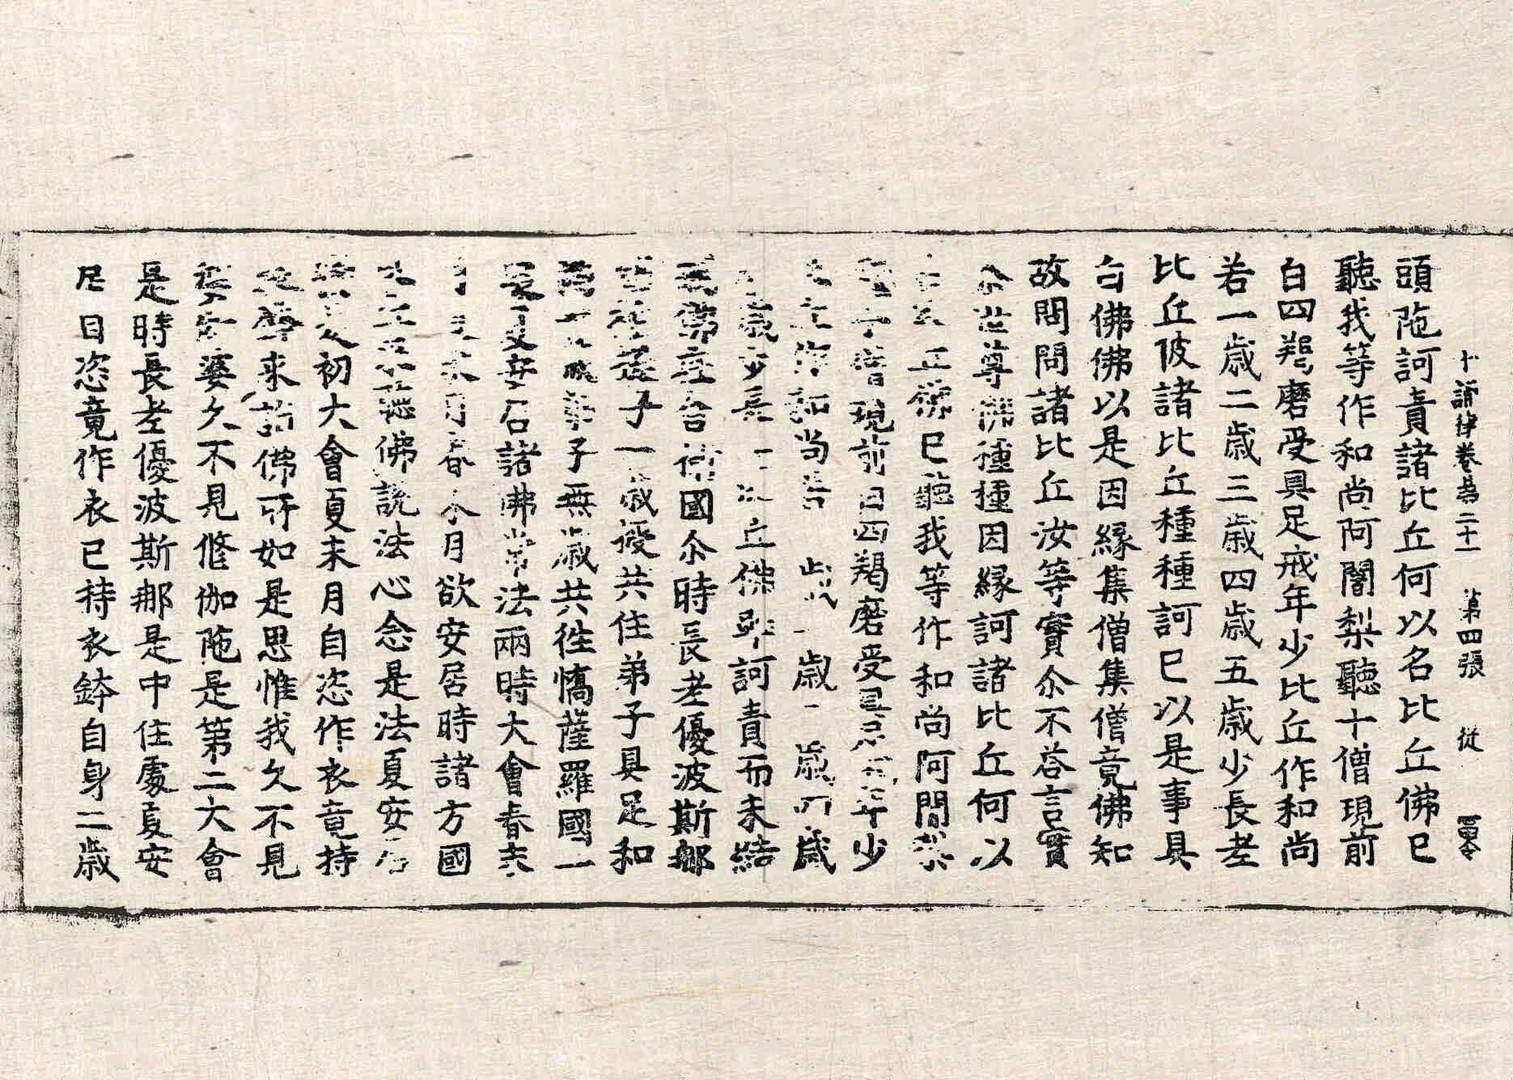 十誦律卷第二十一 第四張 從
頭陁訶責諸比丘何以名比丘佛已
聽我等作和尚阿闍梨聽十僧現前
白四羯磨受具足戒年少比丘作和尚
若一歲二歲三歲四歲五歲少長老
比丘彼諸比丘種種訶已以是事具
白佛佛以是因緣集僧集僧竟佛知
故問問諸比丘汝等實尒不荅言實
尒世尊佛種種因緣訶諸比丘何以
丘佛已聽我等作和尚阿闍梨
僧現前白四羯磨受具足戒年少
比丘作和尚若一歲二歲三歲四歲
五歲少長老比丘佛即訶責而未結
戒佛在舍衛國尒時長老優波斯那
婆檀提子一歲授共住弟子具足和
尚一歲弟子無歲共往憍薩羅國一
處夏安居諸佛常法兩時大會春末
月夏末月春末月欲安居時諸方國
比丘來聽佛說法心念是法夏安居
樂是初大會夏末月自恣作衣竟持
衣鉢來詣佛所如是思惟我久不見
婆久不見修伽陁是第二大會
是時長老優波斯那是中住處夏安
居自恣竟作衣已持衣鉢自身二歲